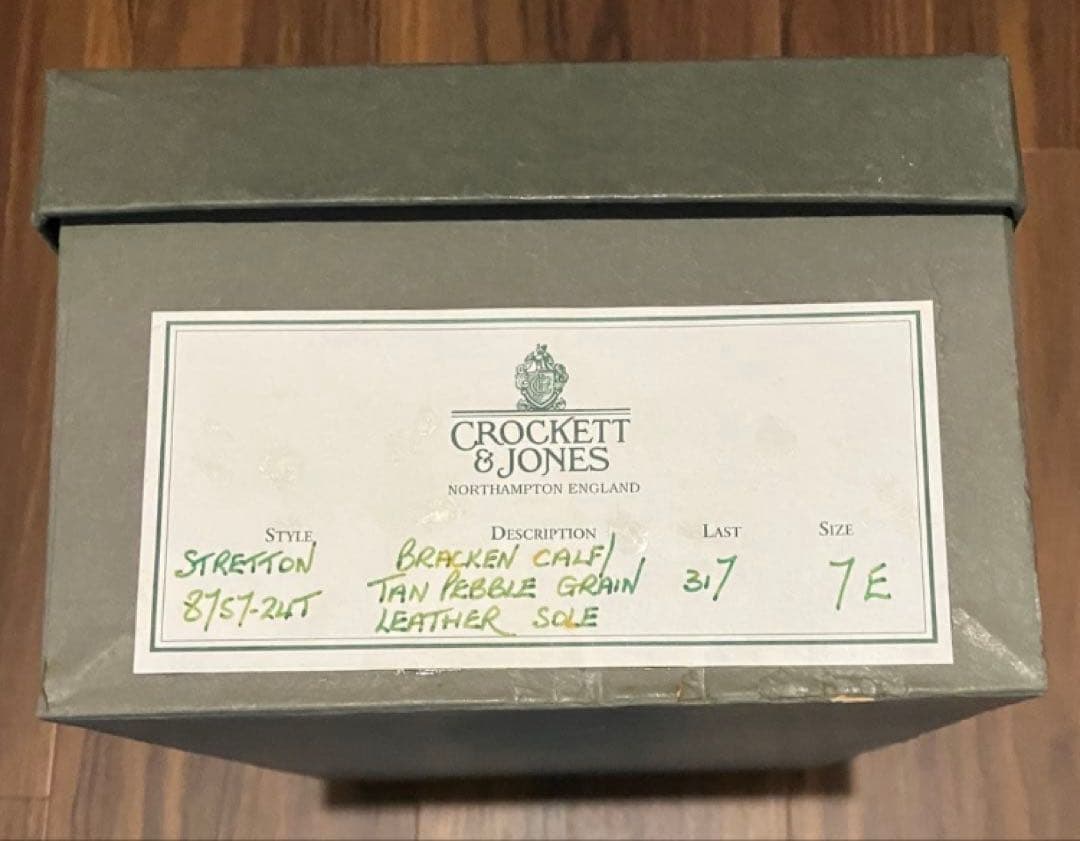 CROCKETT
& JONES
NORTHAMPTON ENGLAND
STYLE DESCRIPTION LAST SIZE
STRETTON BRACKEN CALF/ 317 7 E
8757-24T TAN PEBBLE GRAIN
LEATHER SOLE